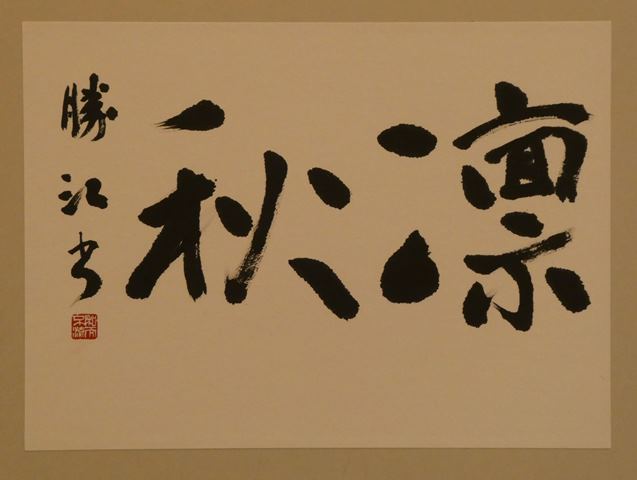 凛秋
勝江書